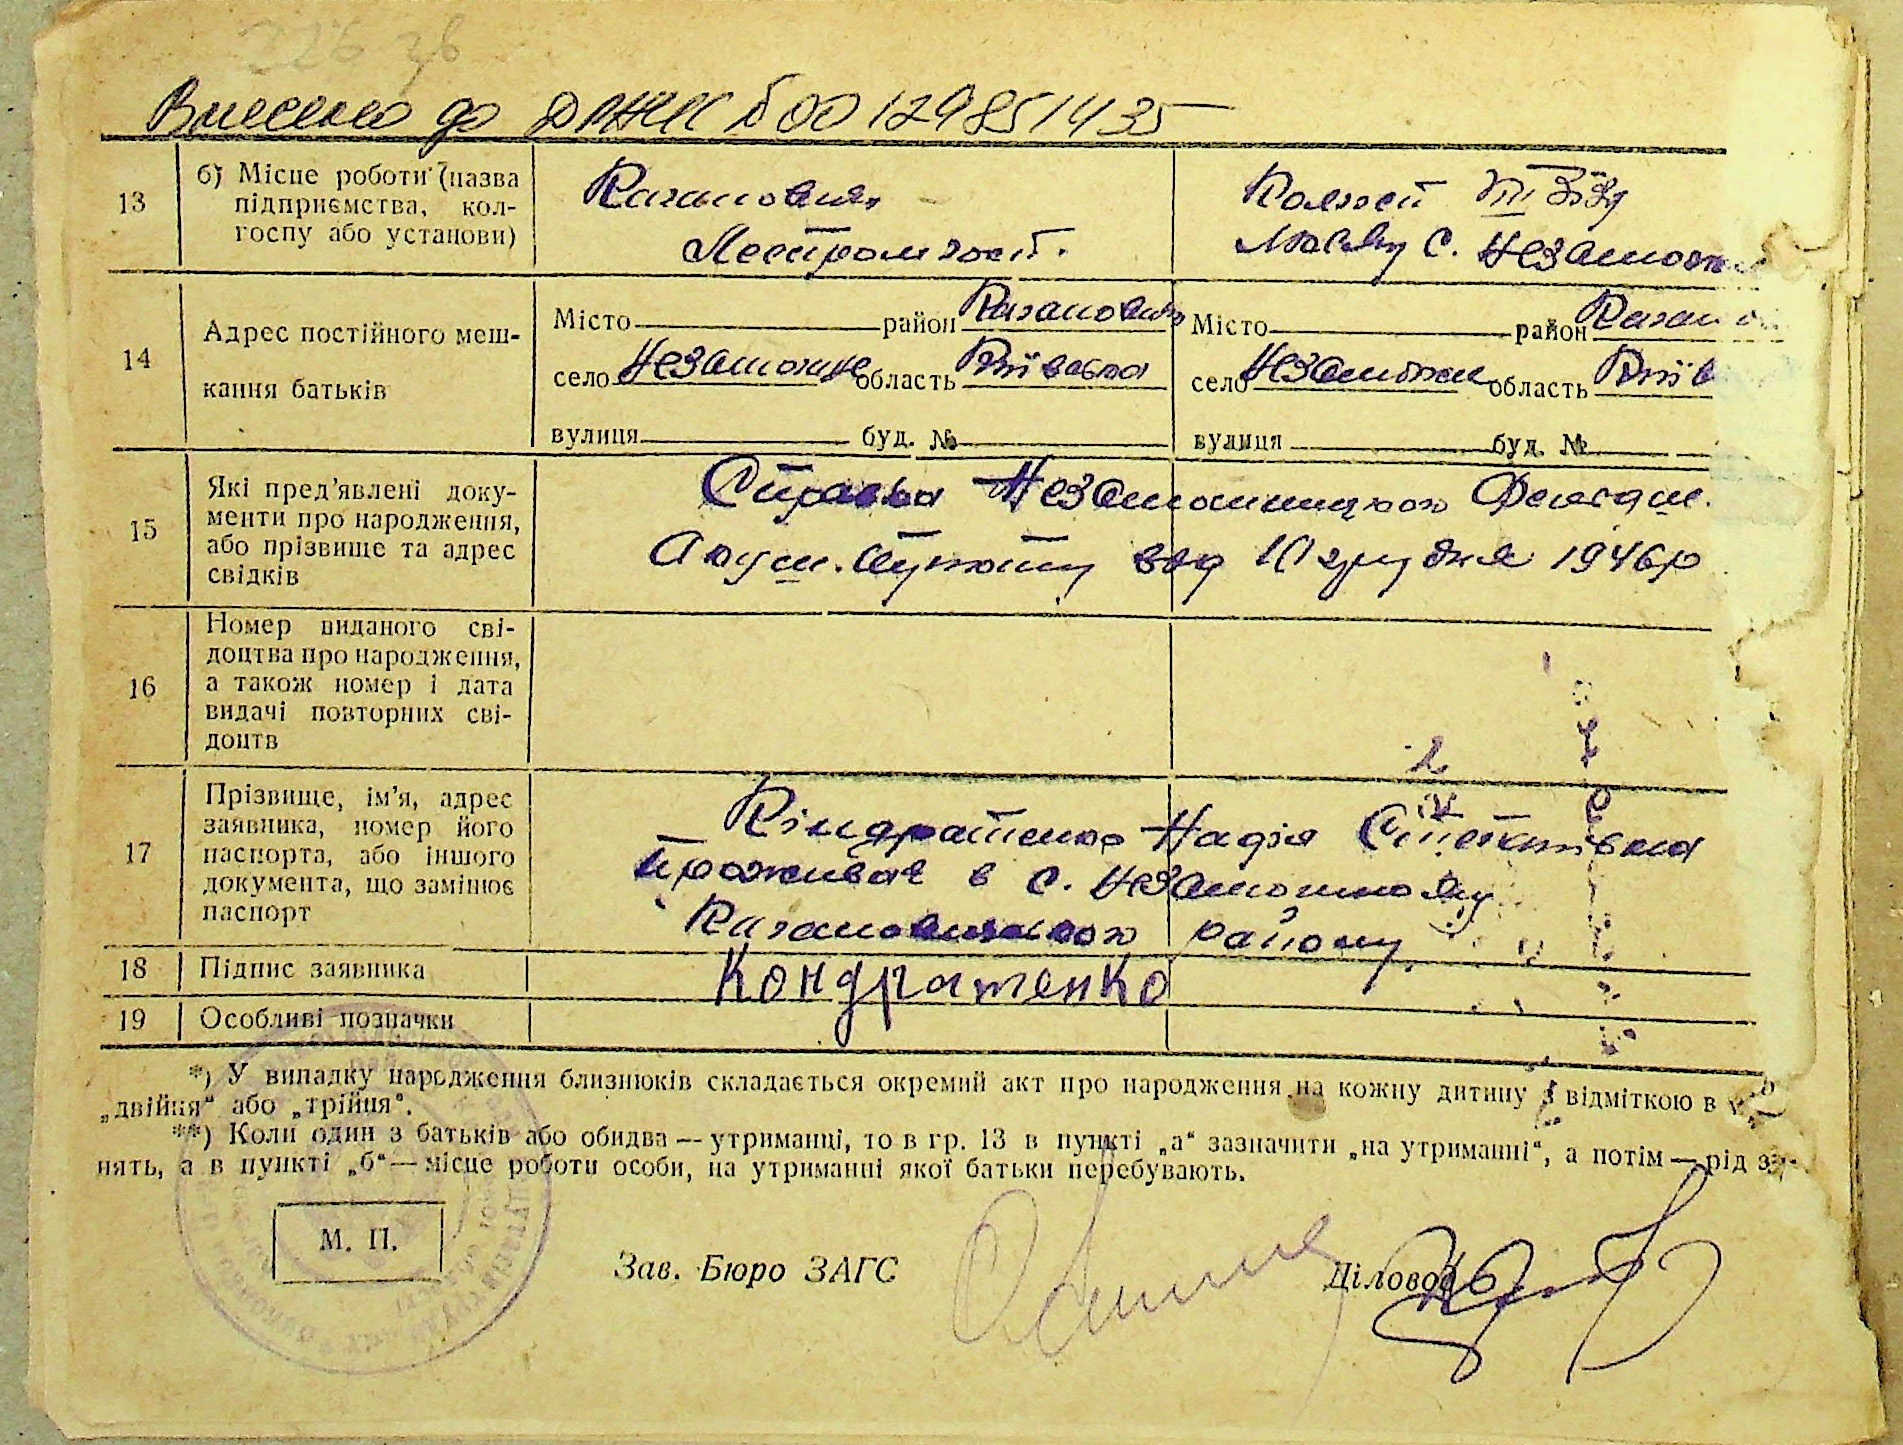 226 зв
Внесено до ДРАЦС № 00129851435
13
б) Місце роботи (назва
підприємства, кол-
госпу або установи)
Кагановичськ
Леспромхоз.
Колгосп VIII З'їзд
с. Незаможн
14
Адрес постійного меш-
кання батьків
Місто район Кагановичськ
село Незаможне область Київська
вулиця буд. №
Місто район Каган
село Незаможне область Київ
вулиця буд. №
15
Які пред'явлені доку-
менти про народження,
або прізвище та адрес
свідків
Справка Незаможницького Фельдш.
Акуш. пункту від 10 грудня 1946р
16
Номер виданого сві-
доцтва про народження,
а також номер і дата
видачі повторних сві-
доцтв
17
Прізвище, ім'я, адрес
заявника, номер його
паспорта, або іншого
документа, що замінює
паспорт
Кіндратенко Надія
проживає в с. Незаможному
Кагановичського району
18
Підпис заявника
Кондратенко
19
Особливі позначки
*) У випадку народження близнюків складається окремий акт про народження на кожну дитину з відміткою в
„двійня“ або „трійня“.
**) Коли один з батьків або обидва — утриманці, то в гр. 13 в пункті „а“ зазначити „на утриманні“, а потім — рід за-
нять, а в пункті „б“ — місце роботи особи, на утриманні якої батьки перебувають.
М. П.
Зав. Бюро ЗАГС
Діловод